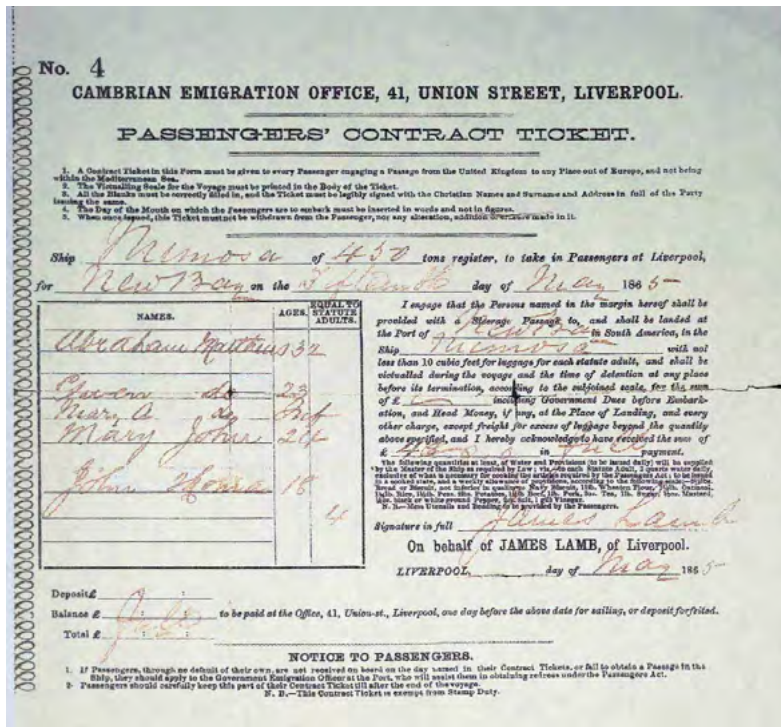 No. 4
CAMBRIAN EMIGRATION OFFICE, 41, UNION STREET, LIVERPOOL.
PASSENGERS' CONTRACT TICKET.
1. A Contract Ticket in this Form must be given to every Passenger engaging a Passage from the United Kingdom to any Place out of Europe, and not being
within the Mediterranean Sea.
2. The Victualling Scale for the Voyage must be printed in the Body of the Ticket.
3. All the Blanks must be correctly filled in, and the Ticket must be legibly signed with the Christian Names and Surname and Address in full of the Party
issuing the same.
4. The Day of the Month on which the Passengers are to embark must be inserted in words and not in figures.
5. When once issued, this Ticket must not be withdrawn from the Passenger, nor any alteration, addition or erasure made in it.
Ship Mimosa of 450 tons register, to take in Passengers at Liverpool,
for New Bay on the day of May 1865
NAMES. AGES. EQUAL TO STATUTE ADULTS.
Abraham Matthews 32
Gwen do 23
Mary A do Inf
Mary John 24
John 18
4
I engage that the Persons named in the margin hereof shall be
provided with a Steerage Passage to, and shall be landed at
the Port of New Bay in South America, in the
Ship Mimosa with not
less than 10 cubic feet for luggage for each statute adult, and shall be
victualled during the voyage and the time of detention at any place
before its termination, according to the subjoined scale, for the sum
of £ including Government Dues before Embark-
ation, and Head Money, if any, at the Place of Landing, and every
other charge, except freight for excess of luggage beyond the quantity
above specified, and I hereby acknowledge to have received the sum of
£ in full payment.
The following quantities at least, of Water and Provisions (to be issued daily) will be supplied
by the Master of the Ship as required by Law; viz.
N. B.—Mess Utensils and Bedding to be provided by the Passengers.
Signature in full James Lamb
On behalf of JAMES LAMB, of Liverpool.
LIVERPOOL, day of May 1865
Deposit £
Balance £ : : to be paid at the Office, 41, Union-st., Liverpool, one day before the above date for sailing, or deposit forfeited.
Total £ : :
NOTICE TO PASSENGERS.
1. If Passengers, through no default of their own, are not received on board on the day named in their Contract Tickets, or fail to obtain a Passage in the
Ship, they should apply to the Government Emigration Officer at the Port, who will assist them in obtaining redress under the Passengers Act.
2. Passengers should carefully keep this part of their Contract Ticket till after the end of the voyage.
N. B.—This Contract Ticket is exempt from Stamp Duty.